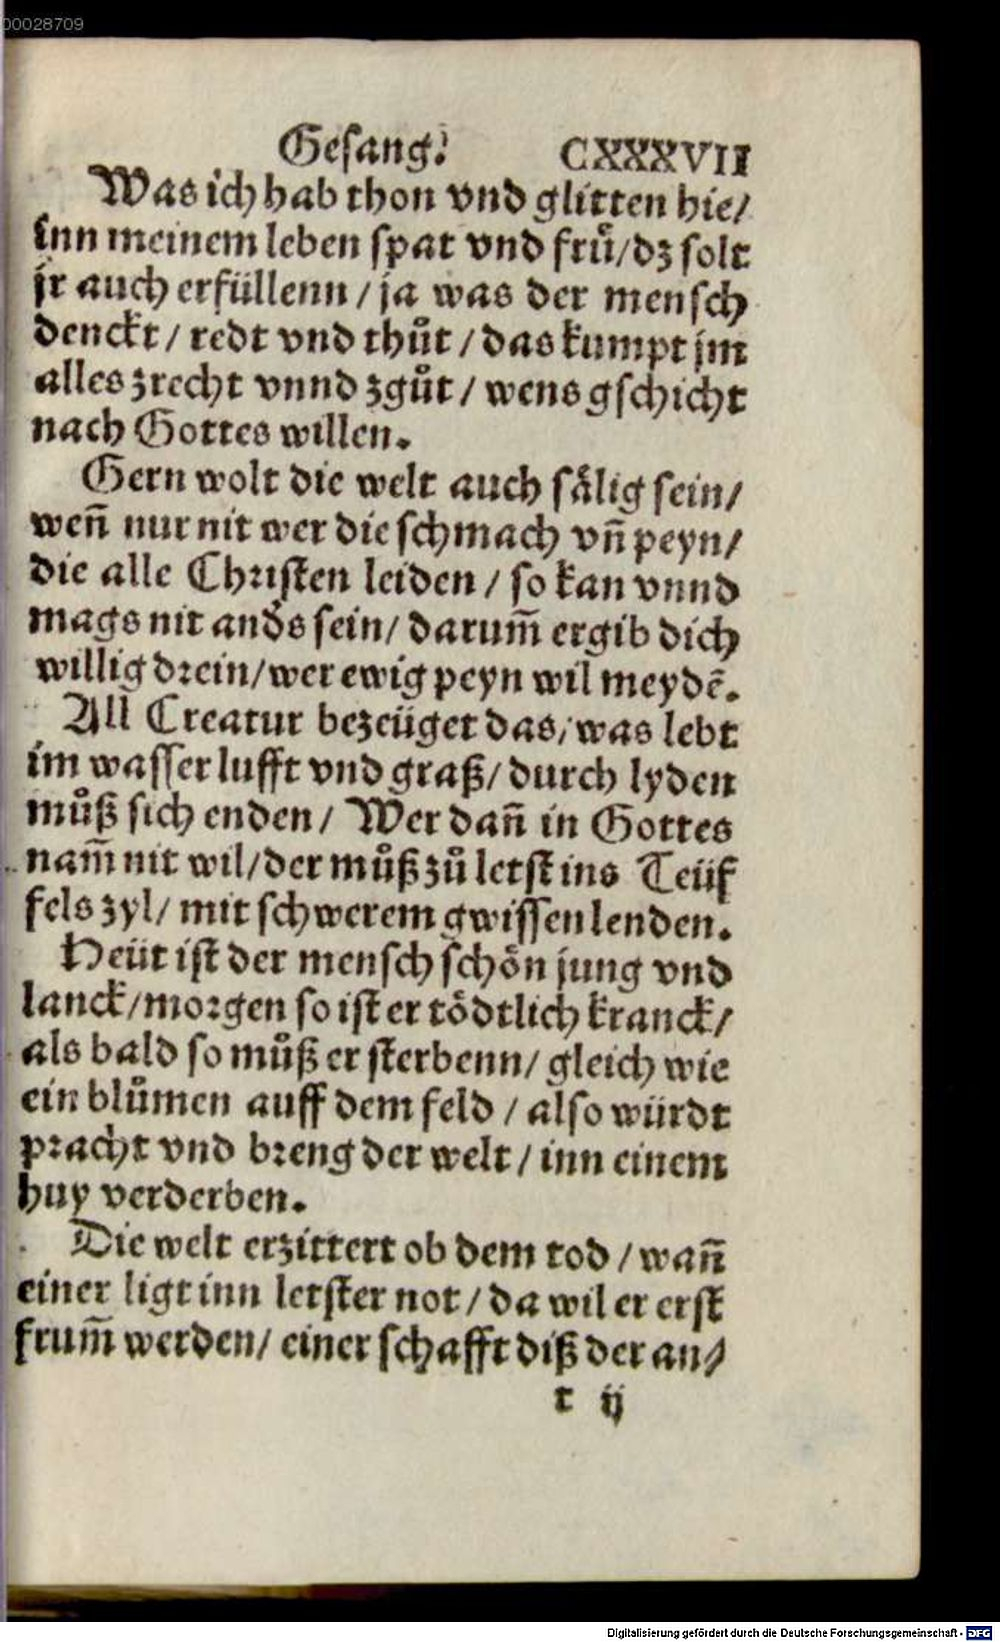 00028709
Gesang. CXXXVII
Was ich hab thon vnd glitten hie/
inn meinem leben spat vnd frů/dz solt
jr auch erfüllenn / ja was der mensch
denckt / redt vnd thůt / das kumpt jm
alles zrecht vnnd zgůt / wens gschicht
nach Gottes willen.
Gern wolt die welt auch sälig sein/
weñ nur nit wer die schmach vñ peyn/
die alle Christen leiden / so kan vnnd
mags nit anďs sein/ darum̃ ergib dich
willig drein/wer ewig peyn wil meydẽ.
All Creatur bezeüget das/was lebt
im wasser lufft vnd graß/durch lyden
můß sich enden/ Wer dañ in Gottes
nam̃ nit wil/der můß zů letst ins Teüf
fels zyl/ mit schwerem gwissen lenden.
Heüt ist der mensch schön jung vnd
lanck/morgen so ist er tödtlich kranck/
als bald so můß er sterbenn/ gleich wie
ein blůmen auff dem feld / also würdt
pracht vnd breng der welt / inn einem
huy verderben.
Die welt erzittert ob dem tod / wañ
einer ligt inn letster not / da wil er erst
frum̃ werden/ einer schafft diß der an/
t ij
Digitalisierung gefördert durch die Deutsche Forschungsgemeinschaft - DFG